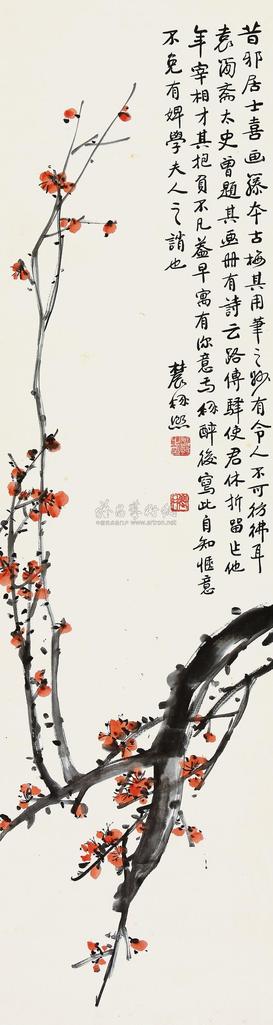 昔邪居士喜画藤本古梅其用笔之妙有令人不可彷彿耳
袁海斋太史曾题其画册有诗云路傅驿使君休折留作他
年宰相才其抱负不凡盖早寓有深意焉 醉後写此自知惬意
不免有婢学夫人之诮也
农
www.artron.net